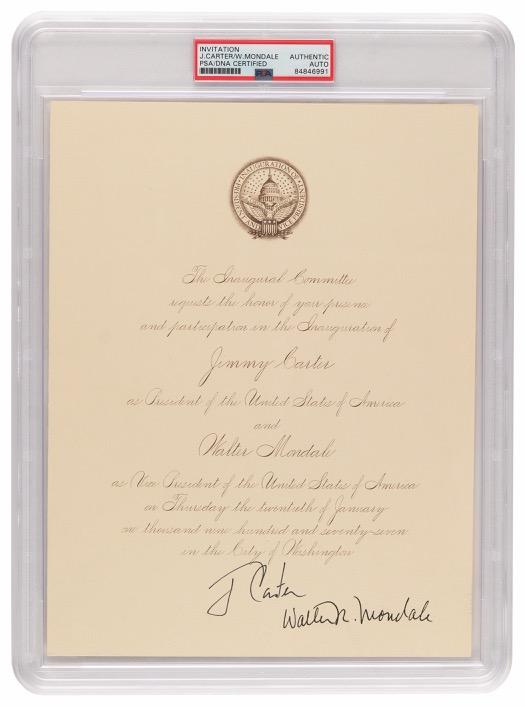 INVITATION
J.CARTER/W.MONDALE AUTHENTIC
PSA/DNA CERTIFIED AUTO
84846991
PSA
The Inaugural Committee
requests the honor of your presence
and participation in the Inauguration of
Jimmy Carter
as President of the United States of America
and
Walter Mondale
as Vice President of the United States of America
on Thursday the twentieth of January
one thousand nine hundred and seventy-seven
in the City of Washington
J Carter
Walter F. Mondale